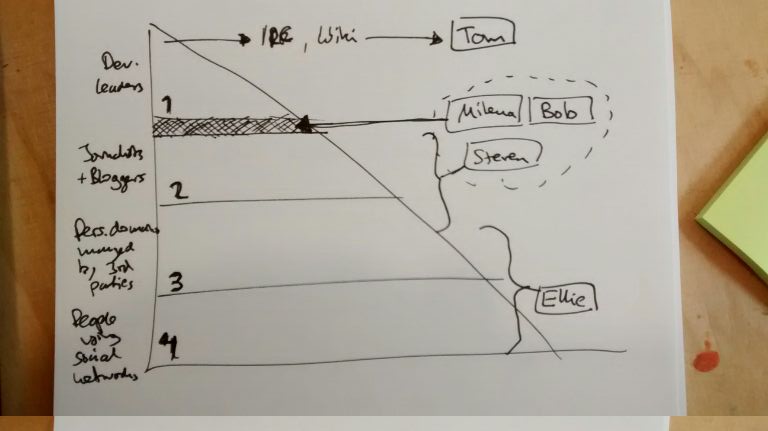 IRC, Wiki
Tom
Dev.
leaders
1
Milena
Bob
Journalists
+ Bloggers
Steven
2
Pers. domains
managed
by 3rd
parties
3
Ellie
People
using
social
networks
4